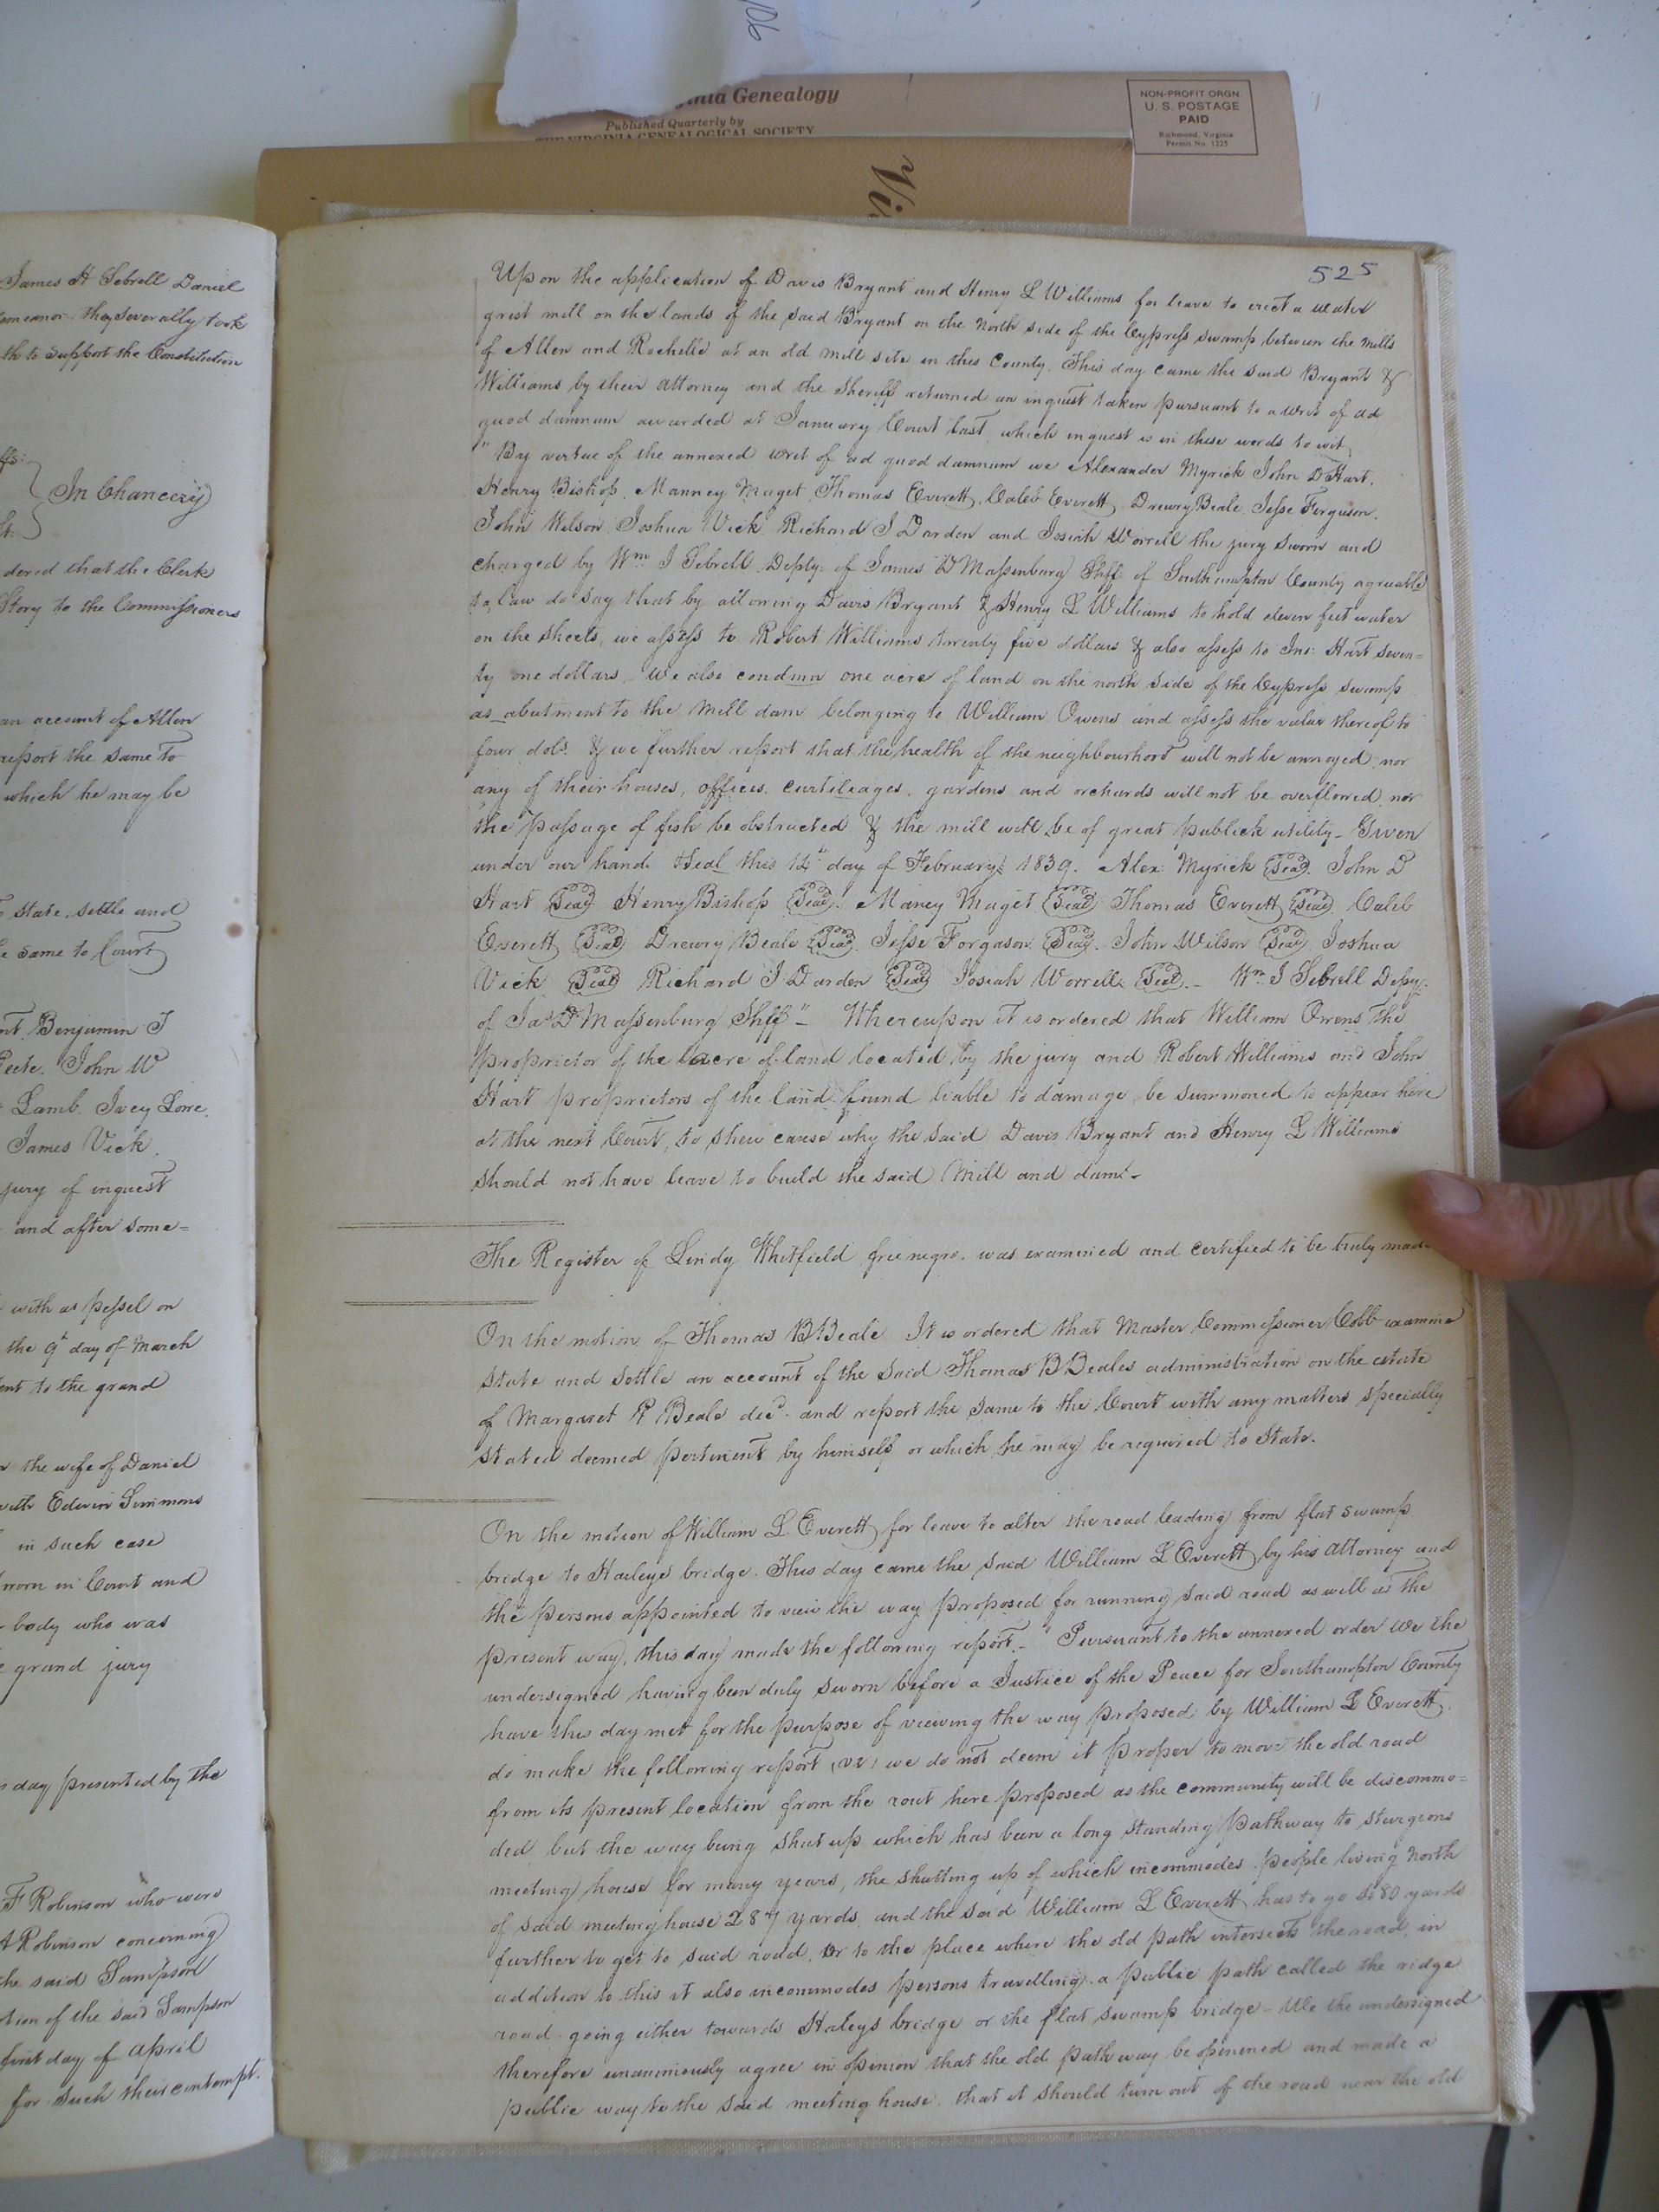 106
Virginia Genealogy
Published Quarterly by
THE VIRGINIA GENEALOGICAL SOCIETY
NON-PROFIT ORGN.
U. S. POSTAGE
PAID
Richmond, Virginia
Permit No. 1225
Vi
James H Sebrell Daniel
they severally took
th to support the Constitution
In Chancery
dered that the Clerk
Story to the Commissioners
an account of Allen
report the same to
which he may be
state, settle and
same to Court
Benjamin J
John W
Lamb. Ivey Lowe.
James Vick,
jury of inquest
and after some=
with as pessel on
the 9th day of March
ent to the grand
the wife of Daniel
with Edwin Simmons
in such case
sworn in Court and
body who was
grand jury
day presented by the
F Robinson who were
Robinson concerning
the said Sampson
tion of the said Sampson
first day of April
for such their contempt.
525
Upon the application of Davis Bryant and Henry L Williams for leave to erect a water
grist mill on the lands of the said Bryant on the North side of the Cypress swamp between the mills
of Allen and Rochelle at an old mill site in this County. This day came the said Bryant &
Williams by their attorney and the Sheriff returned an inquest taken pursuant to a writ of ad
quod damnum awarded at January Court last, which inquest is in these words to wit,
"By virtue of the annexed writ of ad quod damnum we Alexander Myrick John D Hart.
Henry Bishop, Manney Maget, Thomas Everett, Caleb Everett, Drewry Beale, Jesse Ferguson.
John Wilson, Joshua Vick, Richard J Darden and Josiah Worrell the jury sworn and
charged by Wm J Sebrell Depty. of James D Massenburg Shff: of Southampton County agreable
to law do say that by allowing Davis Bryant & Henry L Williams to hold eleven feet water
on the sheets, we assess to Robert Williams twenty five dollars & also assess to Jno: Hart seven=
ty one dollars. We also condmn one acre of land on the north side of the Cypress swamp
as abutment to the mill dam belonging to William Owens and assess the value thereof to
four dols. & we further report that the health of the neighbourhord will not be annoyed, nor
any of their houses, offices, curtileages, gardens and orchards will not be overflowed, nor
the passage of fish be obstructed & the mill will be of great publick utility_ Given
under our hand Seal this 14th day of February 1839. Alex Myrick Seal. John D
Hart Seal Henry Bishop Seal. Maney Maget Seal Thomas Everett Seal Caleb
Everett Seal Drewry Beale Seal. Jesse Forgason. Seal. John Wilson Seal Joshua
Vick Seal Richard J Darden Seal Josiah Worrell Seal._ Wm J Sebrell Depy:
of Jas D Massenburg Shff"_ Whereupon it is ordered that William Owens the
proprietor of the acre of land located by the jury and Robert Williams and John
Hart proprietors of the land found liable to damage, be summoned to appear here
at the next Court, to shew cause why the said Davis Bryant and Henry L Williams
should not have leave to build the said Mill and dam._
The Register of Lindy Whitfield free negro. was examined and certified to be truly made
On the motion of Thomas B Beale It is ordered that Master Commissioner Cobb examine
state and settle an account of the said Thomas B Beales administration on the estate
of Margaret R Beale decd. and report the same to the Court with any matters specially
stated deemed pertinent by himself or which he may be required to state.
On the motion of William L Everett for leave to alter the road leading from flat swamp
bridge to Haileys bridge. This day came the said William L Everett by his attorney and
the persons appointed to view the way proposed for running said road as well as the
present way, this day made the following report._ "Pursuant to the annexed order we the
undersigned having been duly sworn before a Justice of the Peace for Southampton County
have this day met for the purpose of viewing the way proposed by William L Everett.
do make the following report, viz, we do not deem it proper to move the old road
from its present location from the rout here proposed as the community will be discommo=
ded, but the way being shut up which has been a long standing pathway to sturgeons
meeting house for many years, the shutting up of which incommodes people living North
of said meeting house 287 yards, and the said William L Everett has to go yards
further to get to said road, or to the place where the old path intersects the road, in
addition to this it also incommodes persons travelling a public path called the ridge
road going either towards Haleys bridge or the flat swamp bridge_ We the undersigned
therefore unanimously agree in opinion that the old pathway be openened and made a
public way to the said meeting house. that it should turn out of the road near the old